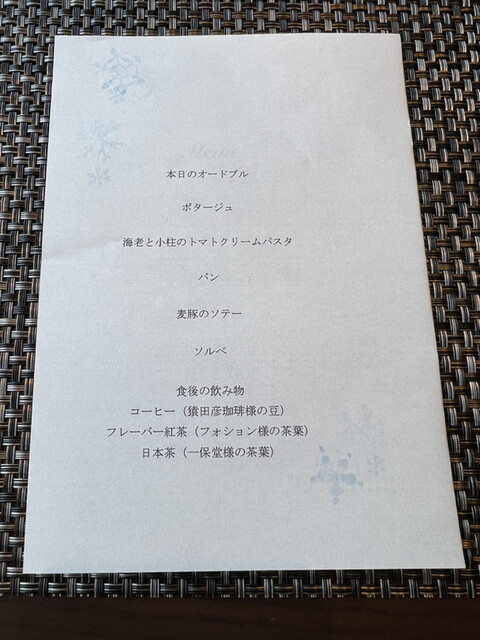 Menu
本日のオードブル
ポタージュ
海老と小柱のトマトクリームパスタ
パン
麦豚のソテー
ソルベ
食後の飲み物
コーヒー（猿田彦珈琲様の豆）
フレーバー紅茶（フォション様の茶葉）
日本茶（一保堂様の茶葉）